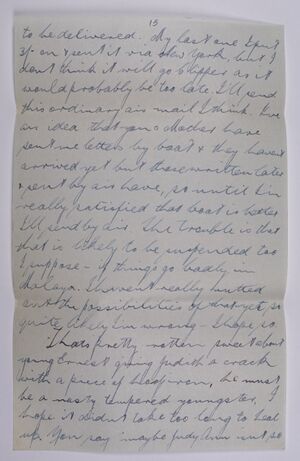 13
to be delivered. My last one I put
3/- on & sent it via New York, but I
don't think it will go Clipper as it
would probably be too late. I'll send
this ordinary air mail I think. I've
an idea that you & Mother have
sent me letters by boat & they haven't
arrived yet but those written later
& sent by air have, so until I'm
really satisfied that boat is better
I'll send by air. The trouble is that
that is likely to be suspended too
I suppose - if things go badly in
Malaya. I haven't really
out the possibilities of that yet, so
quite likely I'm wrong - I hope so.
That's pretty rotten about
young Ernest giving Judith a crack
with a piece of hoop iron, he must
be a nasty tempered youngster. I
hope it didn't take too long to heal
up. You say maybe Judy Ann isn't so